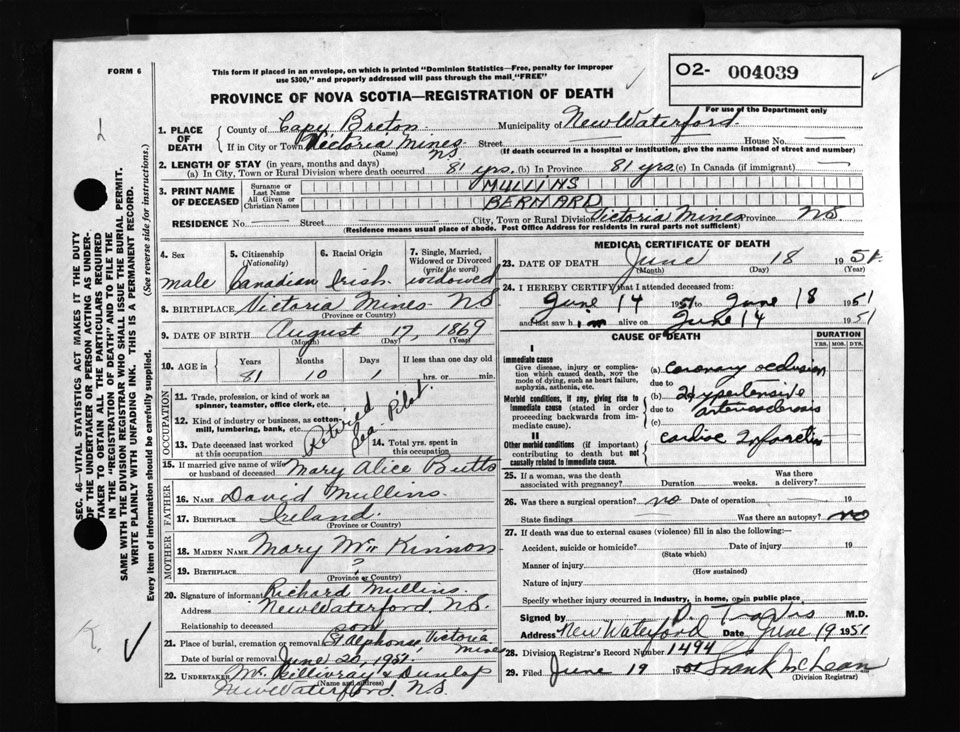 FORM 6
This form if placed in an envelope, on which is printed "Dominion Statistics—Free, penalty for improper
use $300," and properly addressed will pass through the mail "FREE"
O2- 004039
For use of the Department only
PROVINCE OF NOVA SCOTIA—REGISTRATION OF DEATH
1. PLACE OF DEATH
County of Cape Breton Municipality of New Waterford
If in City or Town Victoria Mines Street House No. —
(Name) N.S. (If death occurred in a hospital or institution, give the name instead of street and number)
2. LENGTH OF STAY (in years, months and days)
(a) In City, Town or Rural Division where death occurred 81 yrs. (b) in Province 81 yrs. (c) In Canada (if immigrant) —
3. PRINT NAME OF DECEASED
Surname or Last Name MULLINS
All Given or Christian Names BERNARD
RESIDENCE No. Street City, Town or Rural Division Victoria Mines Province N.S.
(Residence means usual place of abode. Post Office Address for residents in rural parts not sufficient)
4. Sex 5. Citizenship (Nationality) 6. Racial Origin 7. Single, Married, Widowed or Divorced (write the word)
male Canadian Irish widowed
8. BIRTHPLACE Victoria Mines N.S.
(Province or Country)
9. DATE OF BIRTH August 17, 1869
(Month) (Day) (Year)
10. AGE in Years Months Days If less than one day old
81 10 1 hrs. or min.
OCCUPATION
11. Trade, profession, or kind of work as
spinner, teamster, office clerk, etc.
12. Kind of industry or business, as cotton
mill, lumbering, bank, etc.
Retired Sea Pilot.
13. Date deceased last worked
at this occupation
14. Total yrs. spent in
this occupation
15. If married give name of wife
or husband of deceased Mary Alice Butts
FATHER
16. NAME David Mullins.
17. BIRTHPLACE Ireland.
(Province or Country)
MOTHER
18. MAIDEN NAME Mary McKinnon
19. BIRTHPLACE ?
(Province or Country)
20. Signature of informant Richard Mullins.
Address New Waterford, N.S.
Relationship to deceased son
21. Place of burial, cremation or removal St Alphonse, Victoria Mines
Date of burial or removal June 20, 1951.
22. UNDERTAKER McGillivray & Dunlap
(Name and address)
New Waterford, N.S.
MEDICAL CERTIFICATE OF DEATH
23. DATE OF DEATH June 18 1951.
(Month) (Day) (Year)
24. I HEREBY CERTIFY that I attended deceased from:
June 14 1951 to June 18 1951
and last saw him alive on June 14 1951
CAUSE OF DEATH
DURATION
YRS. MOS. DYS.
I
Immediate cause
Give disease, injury or complication which caused death, NOT the mode of dying, such as heart failure, asphyxia, asthenia, etc.
(a) Coronary occlusion
due to
Morbid conditions, if any, giving rise to immediate cause (stated in order proceeding backwards from immediate cause).
(b) Hypertensive
due to arteriosclerosis
(c)
II
Other morbid conditions (if important) contributing to death but not causally related to immediate cause.
Cardiac Infarction
25. If a woman, was the death
associated with pregnancy? Duration weeks. Was there a delivery?
26. Was there a surgical operation? no Date of operation 19
State findings Was there an autopsy? no
27. If death was due to external causes (violence) fill in also the following:—
Accident, suicide or homicide? Date of injury 19
(State which)
Manner of injury
(How sustained)
Nature of injury
Specify whether injury occurred in industry, in home, or in public place
Signed by D. Travis M.D.
Address New Waterford Date June 19 1951
28. Division Registrar's Record Number 1494
29. Filed June 19 1951 Frank McLean
(Division Registrar)
SEC. 46—VITAL STATISTICS ACT MAKES IT THE DUTY
OF THE UNDERTAKER OR PERSON ACTING AS UNDERTAKER TO OBTAIN ALL THE PARTICULARS REQUIRED
IN THE "REGISTRATION OF DEATH" AND TO FILE THE
SAME WITH THE DIVISION REGISTRAR WHO SHALL ISSUE THE BURIAL PERMIT.
WRITE PLAINLY WITH UNFADING INK. THIS IS A PERMANENT RECORD.
Every item of information should be carefully supplied. (See reverse side for instructions.)